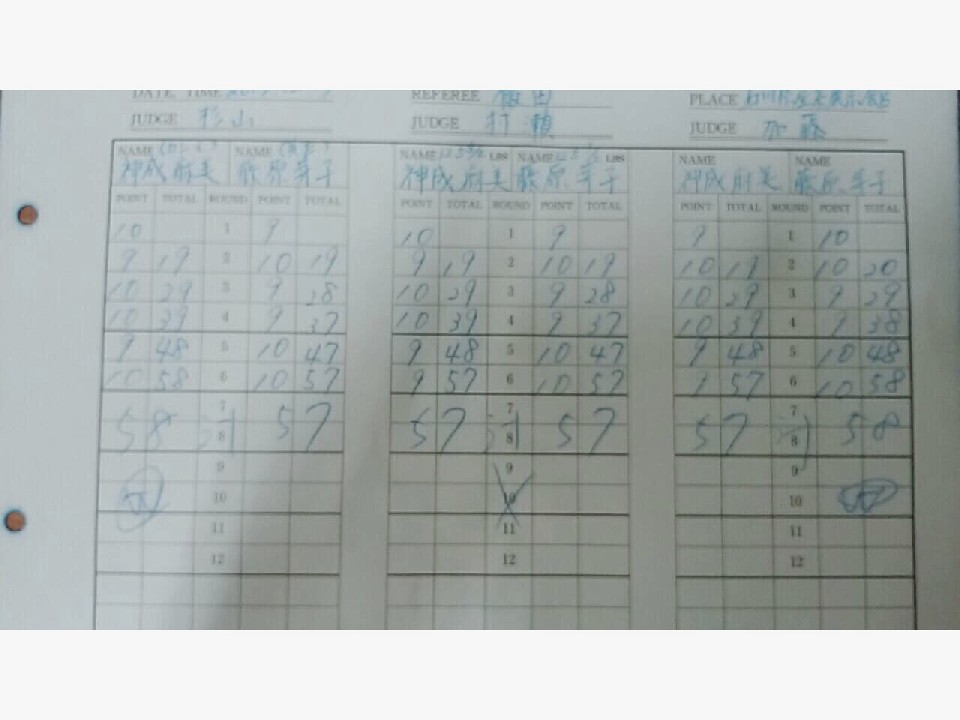 DATE TIME REFEREE PLACE
JUDGE 杉山 JUDGE 打瀬 JUDGE 加藤
NAME NAME NAME LBS NAME LBS NAME NAME
神成麻美 藤原芽子 神成麻美 藤原芽子 神成麻美 藤原芽子
POINT TOTAL ROUND POINT TOTAL POINT TOTAL ROUND POINT TOTAL POINT TOTAL ROUND POINT TOTAL
10 1 9 10 1 9 9 1 10
9 19 2 10 19 9 19 2 10 19 10 19 2 10 20
10 29 3 9 28 10 29 3 9 28 10 29 3 9 29
10 39 4 9 37 10 39 4 9 37 10 39 4 9 38
9 48 5 10 47 9 48 5 10 47 9 48 5 10 48
10 58 6 10 57 9 57 6 10 57 57 6 10 58
7 7 7
58 8 57 57 8 57 57 8 58
9 9 9
10 10 10
11 11 11
12 12 12